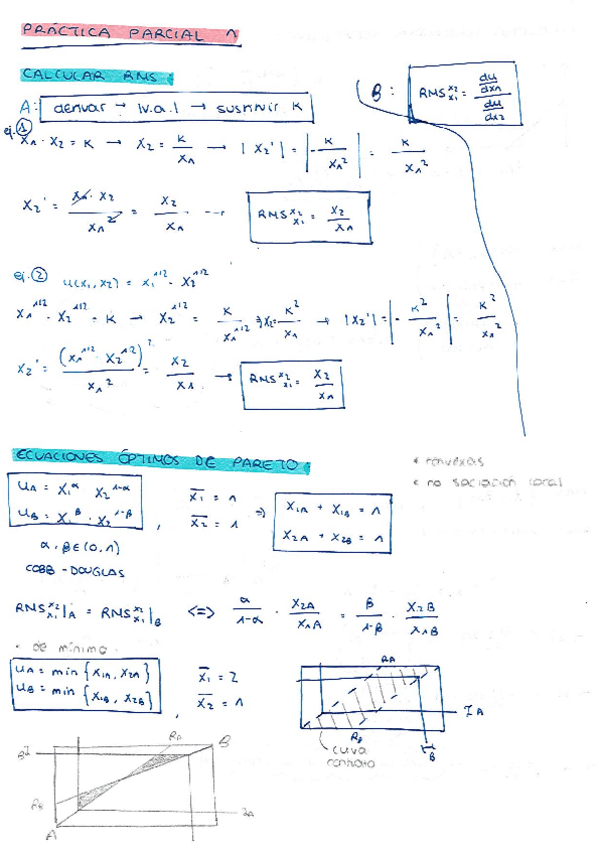 PRÁCTICA PARCIAL 1
CALCULAR RMS
A: derivar → |v.a.| → sustituir K
B: RMS^{x2}_{x1} = (du/dx1)/(du/dx2)
ej. ① x1 · x2 = K → x2 = K/x1 → |x2'| = |-K/x1²| = K/x1²
x2' = (x1 · x2)/x1² = x2/x1 → RMS^{x2}_{x1} = x2/x1
ej. ② u(x1, x2) = x1^{1/2} · x2^{1/2}
x1^{1/2} · x2^{1/2} = K → x2^{1/2} = K/x1^{1/2} ⇒ x2 = K²/x1 → |x2'| = |-K²/x1²| = K²/x1²
x2' = (x1^{1/2} · x2^{1/2})²/x1² = x2/x1 → RMS^{x2}_{x1} = x2/x1
ECUACIONES ÓPTIMOS DE PARETO
* convexas
* no saciación local
uA = x1^α x2^{1-α}
uB = x1^β · x2^{1-β} ,
x̄1 = 1
x̄2 = 1 ⇒
x1A + x1B = 1
x2A + x2B = 1
α, β ∈ (0,1)
COBB-DOUGLAS
RMS^{x2}_{x1}|A = RMS^{x2}_{x1}|B <=> α/(1-α) · x2A/x1A = β/(1-β) · x2B/x1B
· de mínimo ·
uA = min {x1A, x2A}
uB = min {x1B, x2B} ,
x̄1 = 2
x̄2 = 1
RA
IA
RB
IB
curva contrato
RA
B
BI
RB
IA
A